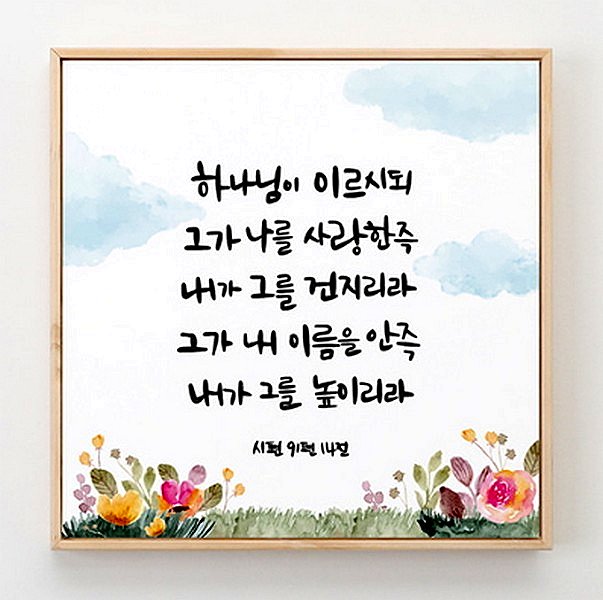 하나님이 이르시되
그가 나를 사랑한즉
내가 그를 건지리라
그가 내 이름을 안즉
내가 그를 높이리라
시편 91편 14절